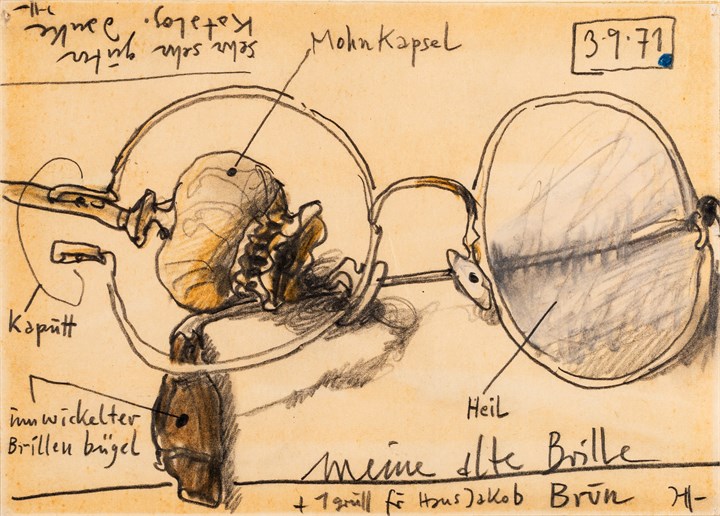 sehr sehr
guter
Katalog.
Danke
JH-
MohnKapsel
3.9.71
Kaputt
umwickelter
Brillen bügel
Heil
meine alte Brille
+ 1 gruß für Hans Jakob Brun JH-